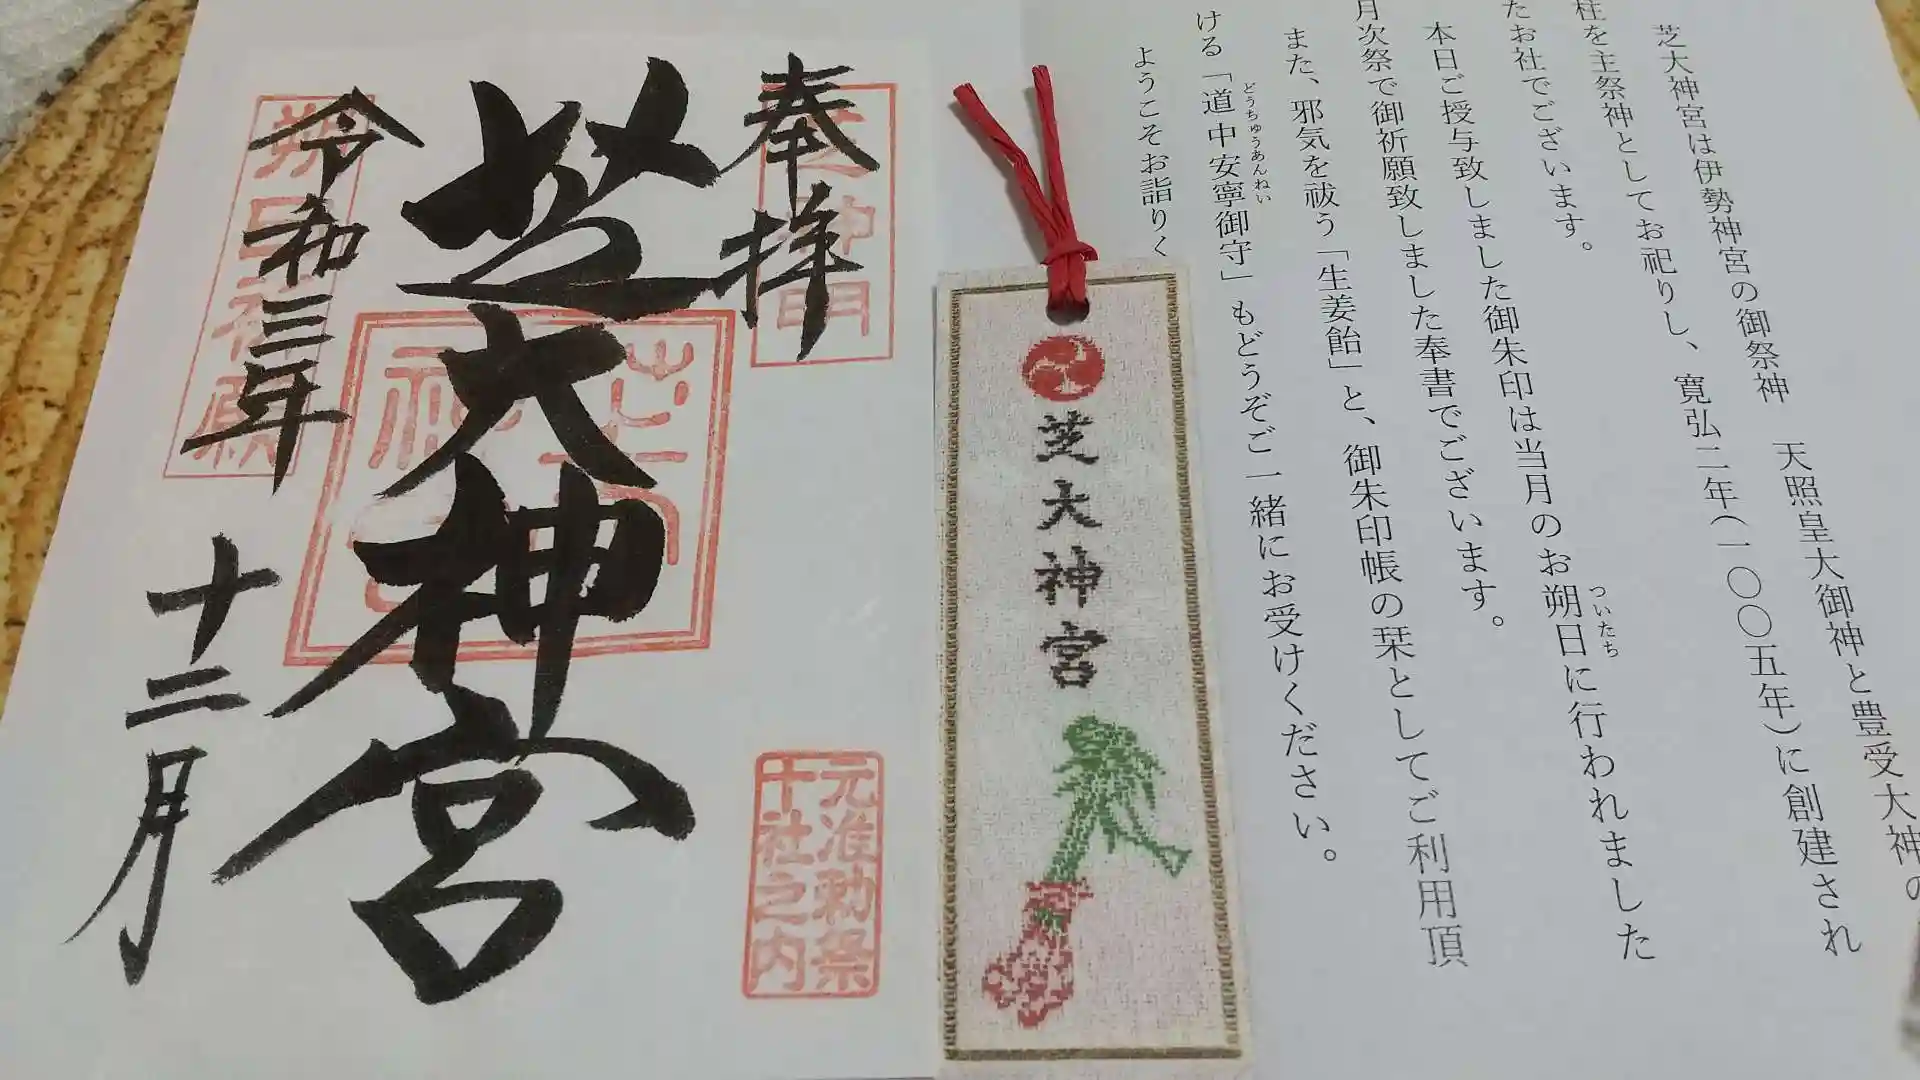 奉拝
芝大神宮
令和三年
十二月
芝神明
朔日祈願
元准勅祭
十社之内
芝大神宮
芝大神宮は伊勢神宮の御祭神 天照皇大御神と豊受大神の
柱を主祭神としてお祀りし、寛弘二年(一〇〇五年)に創建され
たお社でございます。
本日ご授与致しました御朱印は当月のお朔日に行われました
ついたち
月次祭で御祈願致しました奉書でございます。
また、邪気を祓う「生姜飴」と、御朱印帳の栞としてご利用頂
ける「道中安寧御守」もどうぞご一緒にお受けください。
どうちゅうあんねい
ようこそお詣りく